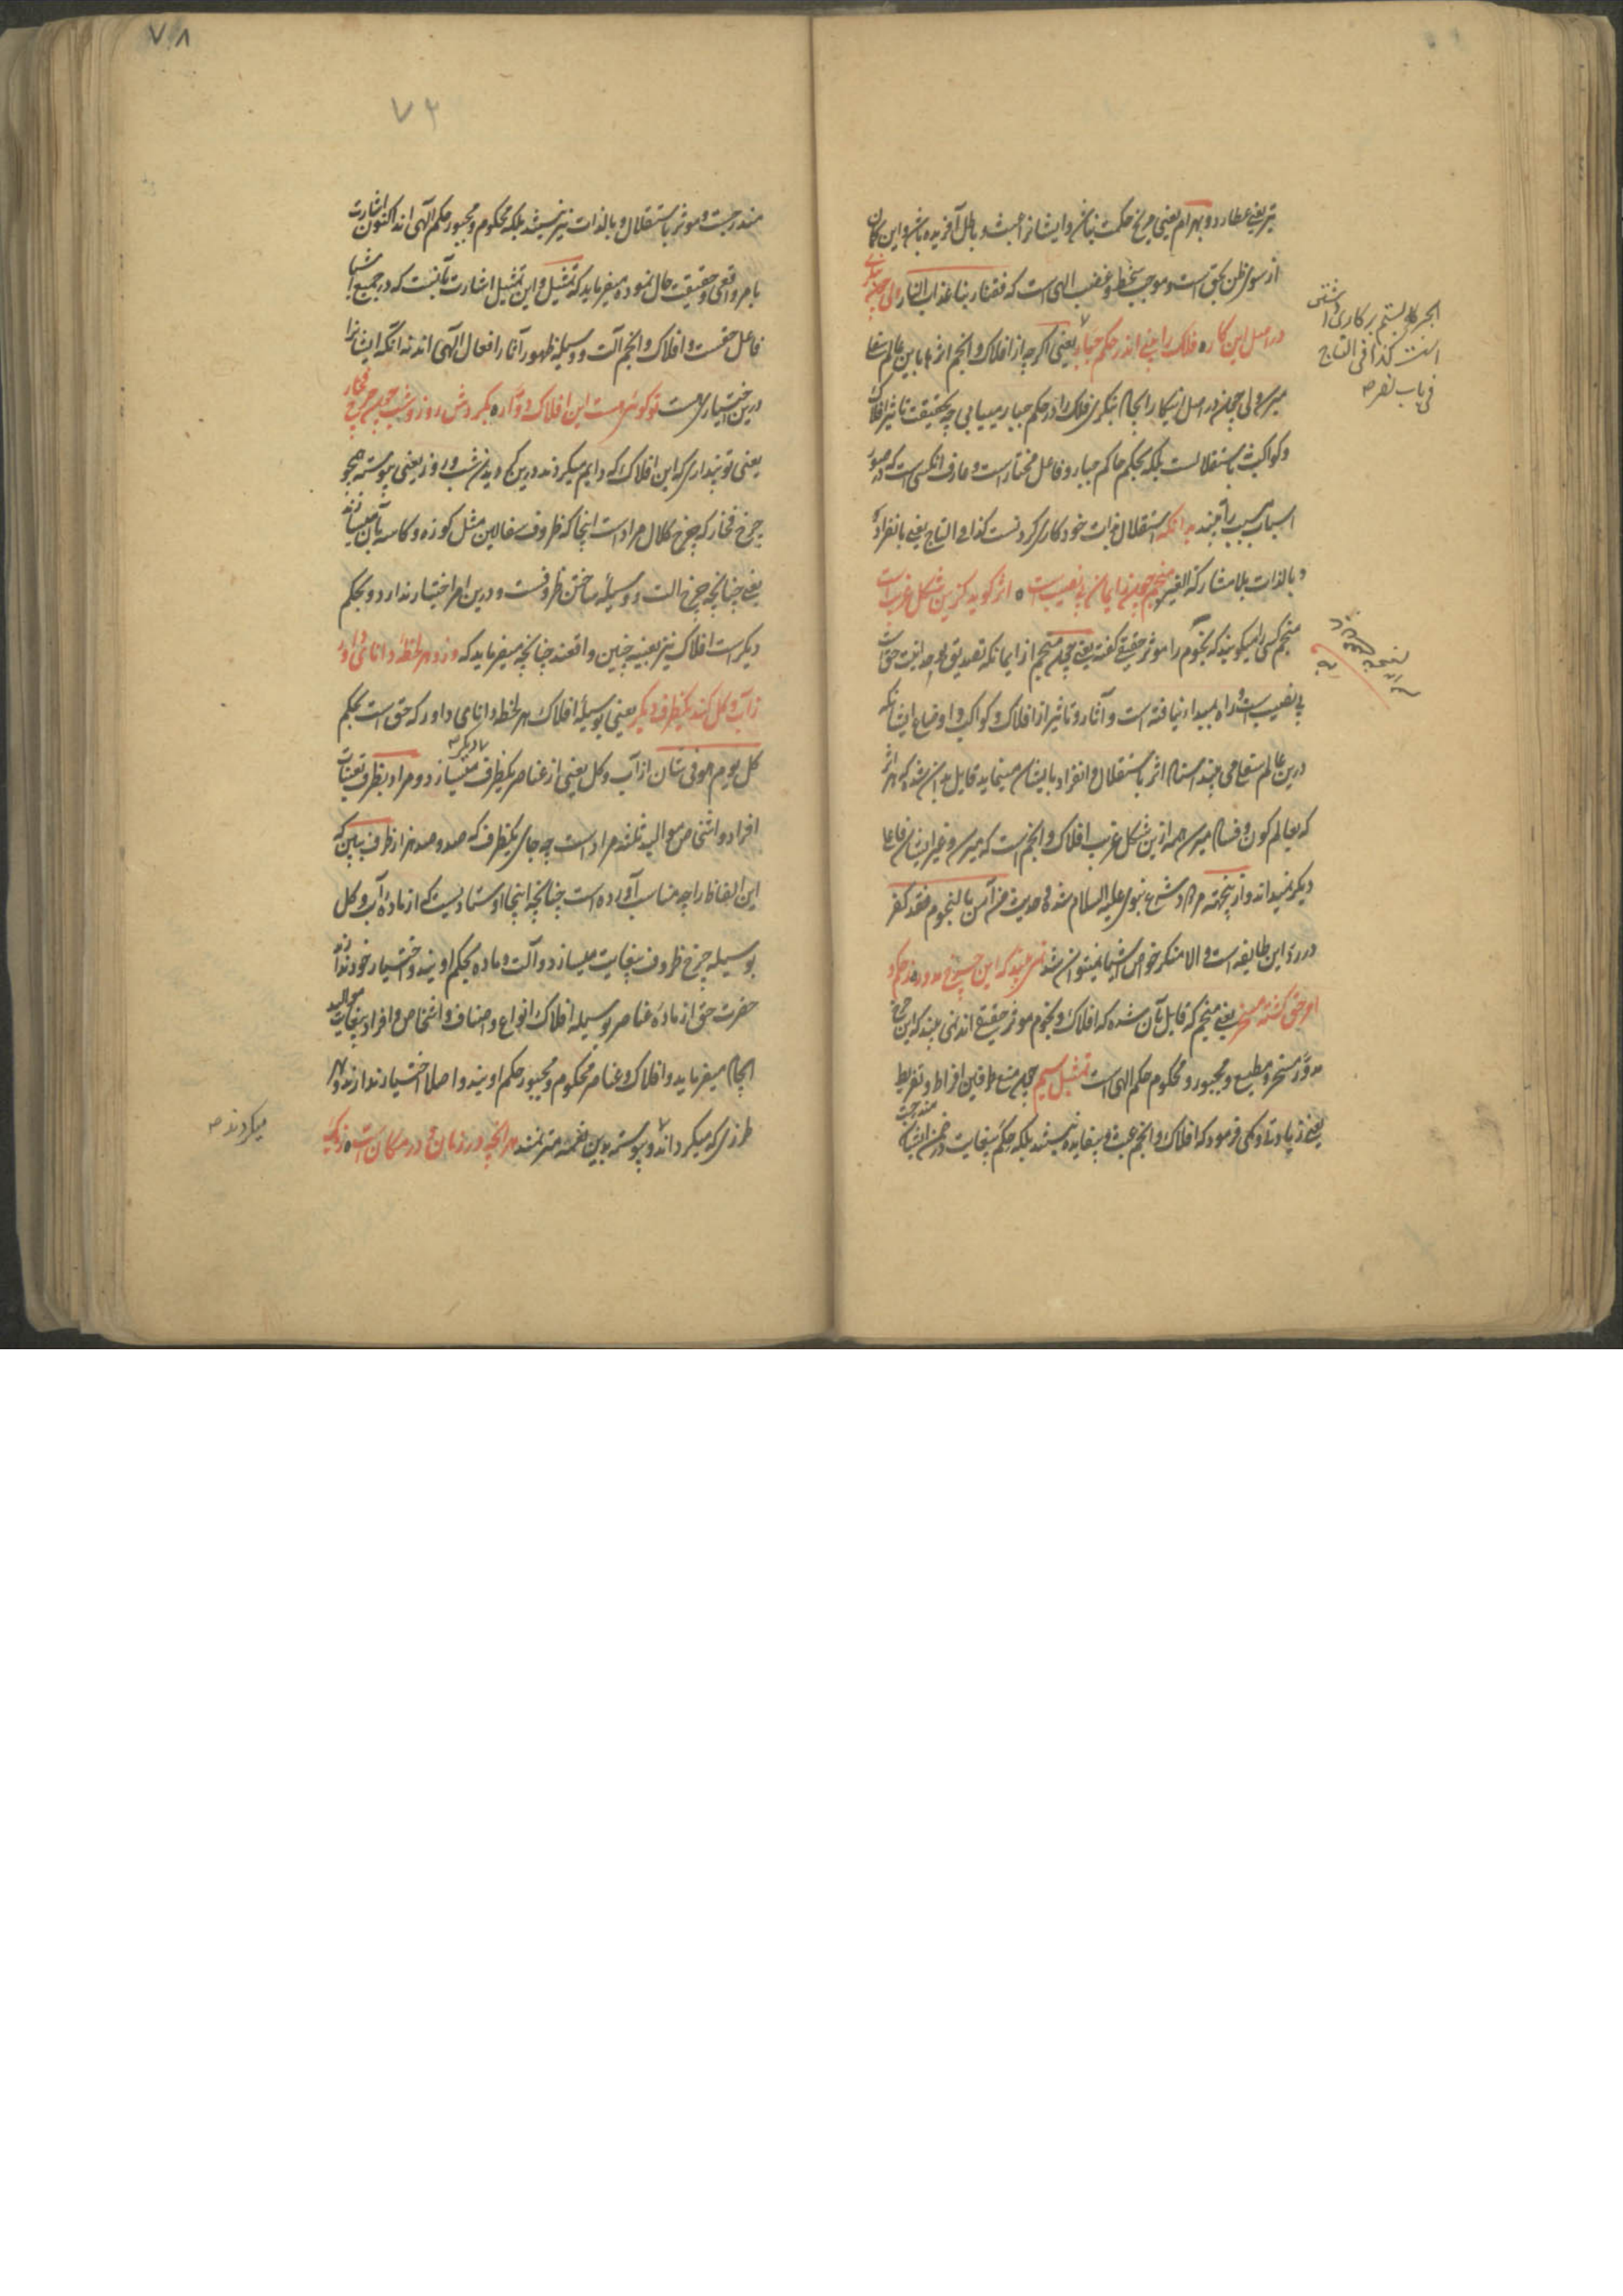 تیر یعنی عطارد و بهرام یعنی مریخ حکمت نباشد و ایشانرا عبث و باطل آفریده باشد و این گمان
از سوء ظن بحق است و موجب سخط و غضب الهی است که فقنا ربنا عذاب النار ولی چون بنگری
در اصل این کار ه فلک را بینی اندر حکم جبار یعنی اگرچه از افلاک و انجم اثرها باین عالم سفلی
میرسد ولی چون در اصل اینکار را تمام بنگری فلک را در حکم جبار میبابی چه بحقیقت تاثیر افلاک
و کواکب باستقلال نیست بلکه بحکم حاکم جبار و فاعل مختار است و عارف آنکس است که در صور
اسباب مسبب را بیند نه آنکه استقلال بذات خود کاری کردنست کذا فی التاج یعنی بانفراده
و بالذات بلا مشارکة الغیر منجم چون ز ایمان بی نصیب است ه اثر گوید کزین شکل غریب است
منجم کسی را میگویند که نجوم را موثر حقیقی گفته یعنی چون منجم از ایمان که تصدیق بوحدانیت حق است
بی نصیب است و راه بمبدا نیافته است و آثار و تاثیر از افلاک و کواکب و اوضاع ایشان که
درین عالم سفلی می بیند اسناد اثر باستقلال و انفراد بایشان مینماید قایل بدان شده که هر اثر
که بعالم کون و فساد میرسد همه ازین شکل غریب افلاک و انجم است که میرسد و غیر ایشان فاعل
دیگر نمیداند و ازینجهته مردود شرع نبوی علیه السلام شده فی حدیث من آمن بالنجوم فقد کفر
در رد این طایفه است و الا منکر خواص اشیا نمیتوان شد نمی بیند که این چرخ مدور ه ز حکم و
امر حق گشته مسخر یعنی منجم که قایل بآن شده که افلاک و نجوم موثر حقیقی اند نمی بیند که این چرخ
مدور مسخر و مطیع و مجبور و محکوم حکم الهی است تمثیل سیم چون منع طرفین افراط و تفریط
یعنی زیادتی و کمی فرمود که افلاک و انجم عبث و بیفایده نیستند بلکه حکم بینهایت در ضمن ایشان مندرجست
الجری بستم بر کاری داشتن
است کذا فی التاج
فی باب نصر ۱۲
۷۸
۷۲
مندرجست و موثر باستقلال و بالذات نیز نیستند بلکه محکوم و مجبور حکم الهی اند اکنون اشارت
بامر واقعی و حقیقت حال نموده میفرماید که تمثیل و این تمثیل اشارت بآنست که در جمیع اشیا
فاعل حقست و افلاک و انجم آلت و وسیله ظهور آثار افعال الهی اند نه آنکه ایشانرا
درین اختیاری هست تو گوئی هست این افلاک دوّار ه بگردش روز و شب چون چرخ فخار
یعنی تو پنداری که این افلاک که دایم میگردند درین گردیدن شب و روز یعنی پیوسته همچو
چرخ فخار که چرخ کلال مراد است اینجا که ظروف سفالین مثل کوزه و کاسه بآن میسازند
یعنی چنانچه چرخ آلت و وسیلهٔ ساختن ظروفست و درین امر اختیار ندارد و بحکم
دیگر است افلاک نیز بعینه چنین واقعند چنانچه میفرماید که وزو هر لحظهٔ دانای داور
ز آب و گل کند یکظرف دیگر یعنی بوسیلهٔ افلاک هر لحظه دانای داور که حق است بحکم
کل یوم هو فی شان از آب و گل یعنی از عناصر یکظرف دیگر میسازد و مراد بظرف تعینات
افراد و اشخاص موالید ثلثه مراد است چه جای یکظرف که صد و صد هزار ظرف ببین که
این الفاظ را چه مناسب آورده است چنانچه اینجا اوستادیست که از ماده آب و گل
بوسیله چرخ ظروف بینهایت میسازد و آلت و ماده بحکم اویند و اختیار خود ندارند
حضرت حق از ماده عناصر بوسیله افلاک انواع و اصناف و اشخاص و افراد بینهایت موالید
ایجاد میفرماید و افلاک و عناصر محکوم و مجبور حکم اویند و اصلا اختیار ندارند و بهر
طرزی که میگرداند و پیوسته بدین نغمه مترنمند هر آنچه در زمان و در مکان است ه ز یک
میگردند ۱۲